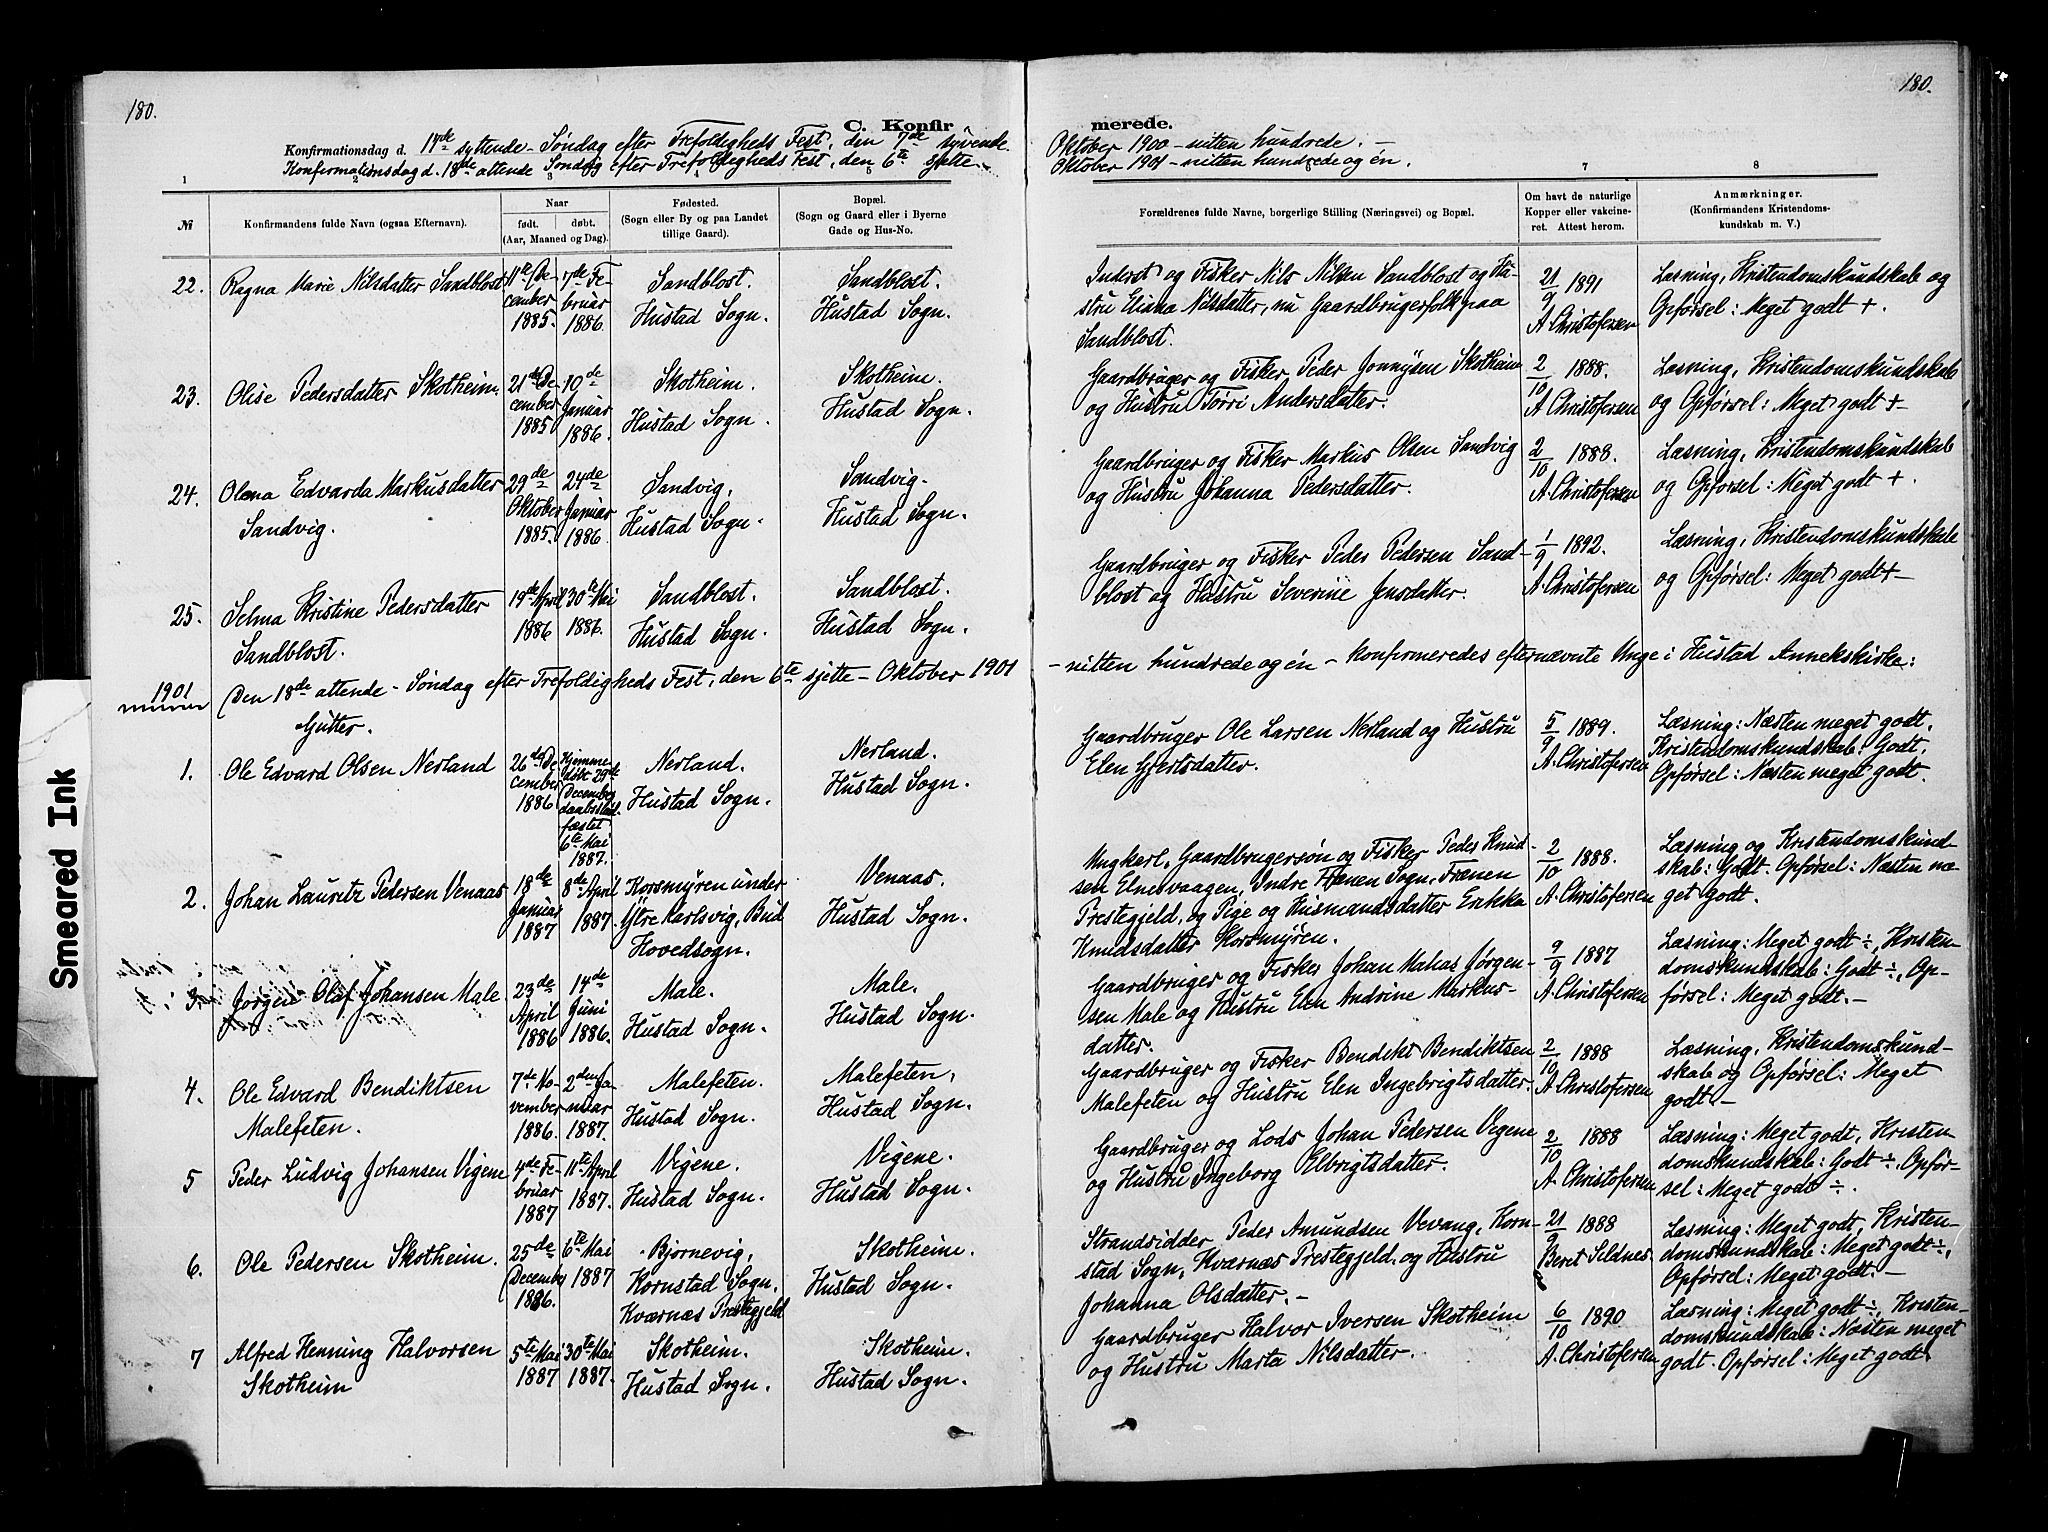 180.
180.
C. Konfir
merede.
Konfirmationsdag d. 17de syttende - Søndag efter Trefoldigheds Fest, den 7de syvende
Oktober 1900 - nitten hundrede. -
Konfirmationsdag d. 18de attende Søndag efter Trefoldigheds Fest, den 6te sjette
Oktober 1901 - nitten hundrede og én.
1 2 3 4 5
6 7 8
№
Konfirmandens fulde Navn (ogsaa Efternavn).
Naar
født. døbt.
(Aar, Maaned og Dag).
Fødested.
(Sogn eller By og paa Landet
tillige Gaard).
Bopæl.
(Sogn og Gaard eller i Byerne
Gade og Hus-No.
Forældrenes fulde Navne, borgerlige Stilling (Næringsvei) og Bopæl.
Om havt de naturlige
Kopper eller vakcine-
ret. Attest herom.
Anmærkninger.
(Konfirmandens Kristendoms-
kundskab m. V.)
22.
Ragna Marie Nilsdatter Sandblost
11te De-
cember
1885.
7de Fe-
bruar
1886.
Sandblost.
Hustad Sogn.
Sandblost.
Hustad Sogn.
Inderst og Fisker Nils Nilsen Sandblost og Hu-
stru Eliana Nilsdatter, nu Gaardbrugerfolk paa
Sandblost.
21/9 1891
A. Christofersen
Læsning, Kristendomskundskab og
Opførsel: Meget godt +.
23.
Olise Pedersdatter Skotheim.
21de De-
cember
1885
10de
Januar
1886.
Skotheim.
Hustad Sogn.
Skotheim.
Hustad Sogn.
Gaardbruger og Fisker Peder Jonnysen Skotheim
og Hustru Torri Andersdatter.
2/10 1888.
A. Christofersen
Læsning, Kristendomskundskab
og Opførsel: Meget godt +-
24.
Olena Edvarda Markusdatter
Sandvig.
29de
Oktober
1885.
24de
Januar
1886.
Sandvig,
Hustad Sogn.
Sandvig.
Hustad Sogn.
Gaardbruger og Fisker Markus Olsen Sandvig
og Hustru Johanna Pedersdatter.
2/10 1888.
A. Christofersen
Læsning, Kristendomskundskab
og Opførsel: Meget godt +.
25.
Selma Kristine Pedersdatter
Sandblost.
19de April
1886
30te Mai
1886.
Sandblost.
Hustad Sogn.
Sandblost.
Hustad Sogn.
Gaardbruger og Fisker Peder Pedersen Sand-
blost og Hustru Severine Jensdatter.
1/9 1892.
A. Christofersen
Læsning, Kristendomskundskab
og Opførsel: Meget godt +-
1901
Den 18de attende - Søndag efter Trefoldigheds Fest, den 6te sjette - Oktober 1901
- nitten hundrede og én - konfirmeredes efternævnte Unge i Hustad Annekskirke:
Gutter.
1.
Ole Edvard Olsen Nerland
26de De
cember
1886
Hjemme
døbt 29de
December
daabsstad-
fæstet
6te Mai
1887.
Nerland.
Hustad Sogn.
Nerland.
Hustad Sogn.
Gaardbruger Ole Larsen Nerland og Hustru
Elen Gjertsdatter.
5/9 1889.
A. Christofersen
Læsning: Næsten meget godt.
Kristendomskundskab: Godt.
Opførsel: Næsten meget godt.
2.
Johan Lauritz Pedersen Venaas
18de
Januar
1887
8de April
1887.
Korsmyren under
Ytre Karlsvig, Bud
Hovedsogn.
Venaas.
Hustad Sogn.
Ungkarl, Gaardbrugersøn og Fisker Peder Knud-
sen Elnesvaagen, Indre Frænen Sogn, Frænen
Prestegjeld, og Pige og Husmandsdatter Erikka
Knudsdatter Korsmyren.
2/10 1888.
A. Christofersen
Læsning og Kristendomskund-
skab: Godt. Opførsel: Næsten me-
get godt.
3.
Jørgen Olaf Johansen Male
23de
April
1886
14de
Juni
1886.
Male.
Hustad Sogn.
Male.
Hustad Sogn.
Gaardbruger og Fisker Johan Mahas Jørgen-
sen Male og Hustru Elen Andrine Markus-
datter.
9/9 1887
A. Christofersen
Læsning: Meget godt ÷, Kristen-
domskundskab: Godt ÷, Op-
førsel: Meget godt. -
4.
Ole Edvard Bendiktsen
Malefeten.
7de No-
vember
1886.
2den Ja-
nuar
1887.
Malefeten.
Hustad Sogn.
Malefeten,
Hustad Sogn.
Gaardbruger og Fisker Bendikt Bendiktsen
Malefeten og Hustru Elen Ingebrigtsdatter.
2/10 1888
A. Christofersen
Læsning, Kristendomskund-
skab og Opførsel: Meget
godt. -
5
Peder Ludvig Johansen Vigene
4de Fe-
bruar
1887
11te April
1887.
Vigene.
Hustad Sogn.
Vigene.
Hustad Sogn.
Gaardbruger og Lods Johan Pedersen Vegene
og Hustru Ingeborg Elbrigtsdatter.
2/10 1888
A. Christofersen
Læsning: Meget godt, Kristen-
domskundskab: Godt ÷, Opfør-
sel: Meget godt ÷.
6.
Ole Pedersen Skotheim.
25de
December
1886.
6te Mai
1887
Bjørnevig,
Kornstad Sogn,
Kvernæs Prestegjeld
Skotheim.
Hustad Sogn.
Strandsidder Peder Amundsen Vevang, Korn-
stad Sogn, Kværnæs Prestegjeld, og Hustru
Johanna Olsdatter. -
21/9 1888
Beret Seldnes
Læsning: Meget godt, Kristen-
domskundskab: Meget godt ÷,
Opførsel: Meget godt. -
7
Alfred Henning Halvorsen
Skotheim
5te Mai
1887
30te Mai
1887.
Skotheim.
Hustad Sogn.
Skotheim.
Hustad Sogn.
Gaardbruger Halvor Iversen Skotheim
og Hustru Marta Nilsdatter.
6/10 1890
A. Christofersen
Læsning: Meget godt ÷, Kristen-
domskundskab: Næsten meget
godt. Opførsel: Meget godt.
Smeared Ink